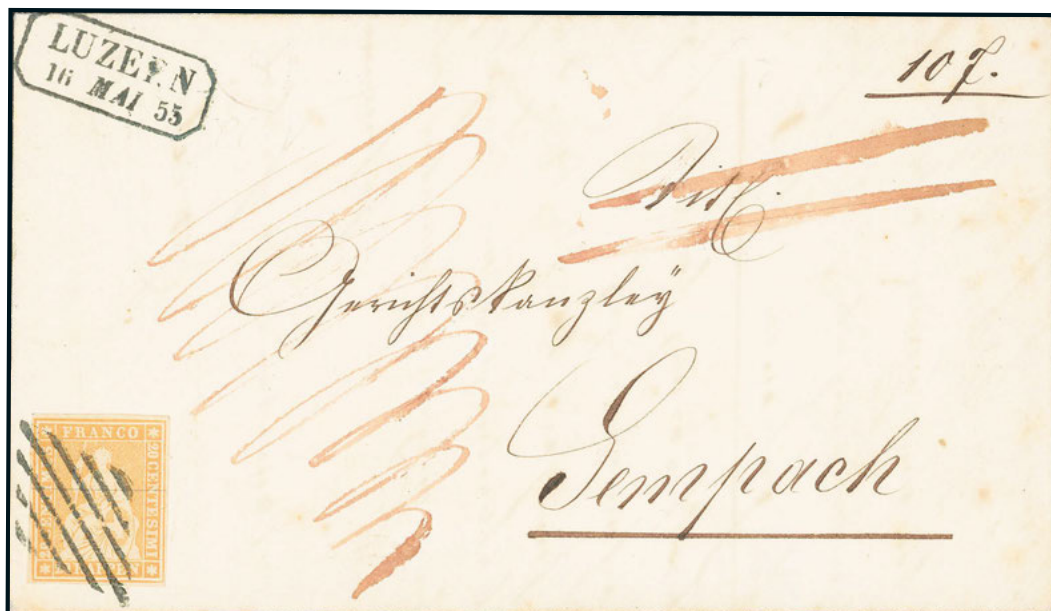 LUZERN
16 MAI 55
10 f.
Gerichtskanzley
Sempach
FRANCO
20 CENTESIMI
RAPPEN